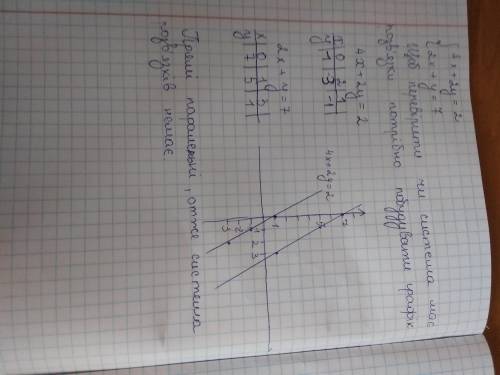 4x + 2y = 2
2x + y = 7
Щоб перевірити чи система має
розв'язки потрібно побудувати графік
4x + 2y = 2
x | 0 | 2 | 1
y | 1 | -3 | -1
2x + y = 7
x | 0 | 1 | 3
y | 7 | 5 | 1
4x+2y=2
7
1
2 3
-2
-3
Прямі паралельні, отже система
розв'язків немає